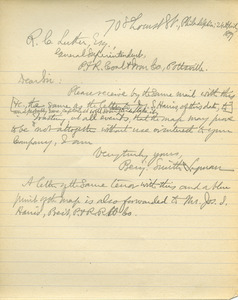 708 Locust St., Philadelphia, 24 April
R. C. Luther, Esq.,
General Superintendent,
P. & R. Coal & Iron Co., Pottsville.
Dear Sir:
Please receive by the same mail with this
the same
at all events that the map may prove
to be not altogether without use or interest to your
Company, I am
Very truly yours,
Benj. Smith Lyman.
A letter of the same tenor with this and a blue
print of the map is also forwarded to Mr. Jos. S.
Harris, Pres't, P. & R. R. R. Co.